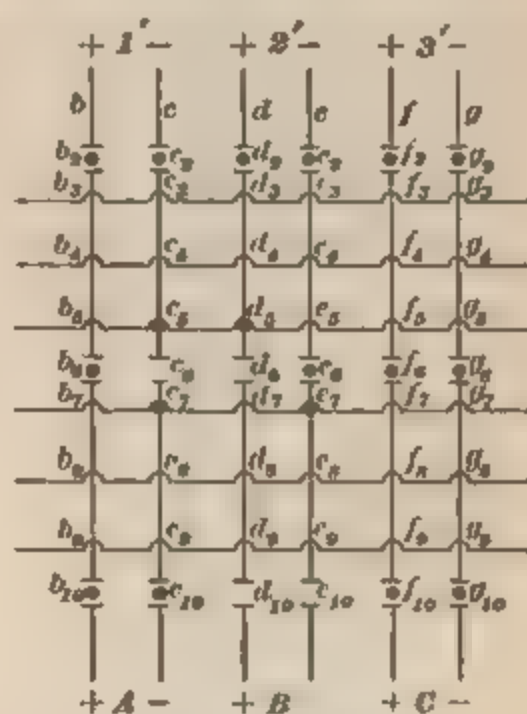 + 1' - + 2' - + 3' -
b c d e f g
b₂ c₂ d₂ e₂ f₂ g₂
b₃ d₃ f₃ g₃
b₄ c₄ d₄ e₄ f₄ g₄
b₅ c₅ d₅ e₅ f₅ g₅
b₆ c₆ d₆ e₆ f₆ g₆
b₇ c₇ d₇ e₇ f₇ g₇
b₈ c₈ d₈ e₈ f₈ g₈
b₉ c₉ d₉ e₉ f₉ g₉
b₁₀ c₁₀ d₁₀ e₁₀ f₁₀ g₁₀
+ A - + B + C -